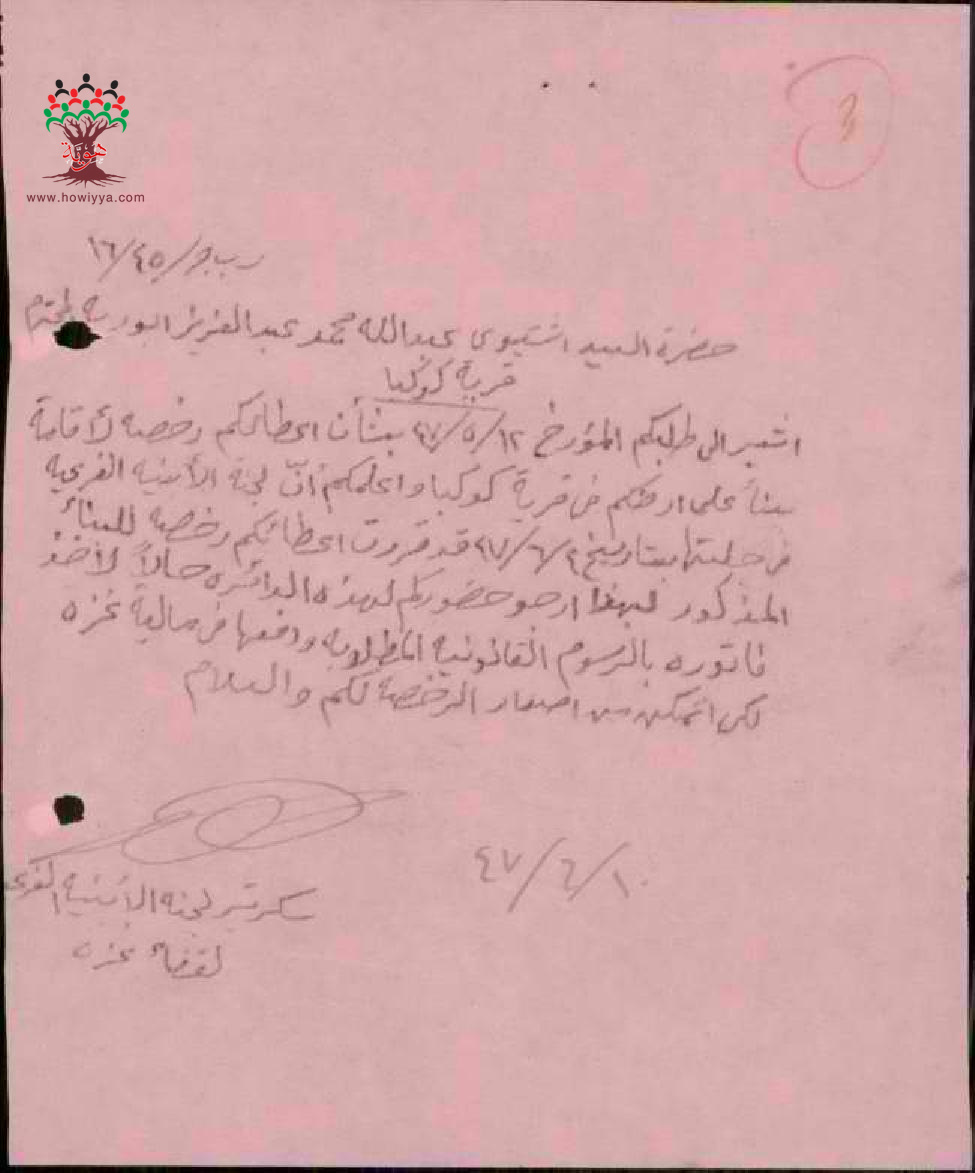 هوية
www.howiyya.com
3
ر ب و/٤٥/١٦
حضرة السيد اشتيوي عبدالله محمد عبدالعزيز المحترم
قرية كوكبا
اشير الى طلبكم المؤرخ ١٢/٥/٤٧ بشأن اعطائكم رخصه لأقامة
بناء على ارضكم في قرية كوكبا واعلمكم انّ لجنة الأبنيه الفرعيه
في جلستها بتاريخ ٤/٦/٤٧ قد قررت اعطائكم رخصه للبناء
المذكور لهذا ارجو حضوركم لهذه الدائره حالاً لأخذ
فاتوره بالرسوم القانونيه المطلوبه ودفعها في مالية غزه
لكي اتمكن من اصدار الرخصه لكم والسلام
١٠/٦/٤٧
سكرتير لجنة الأبنيه الفرعيه
لقضاء غزه